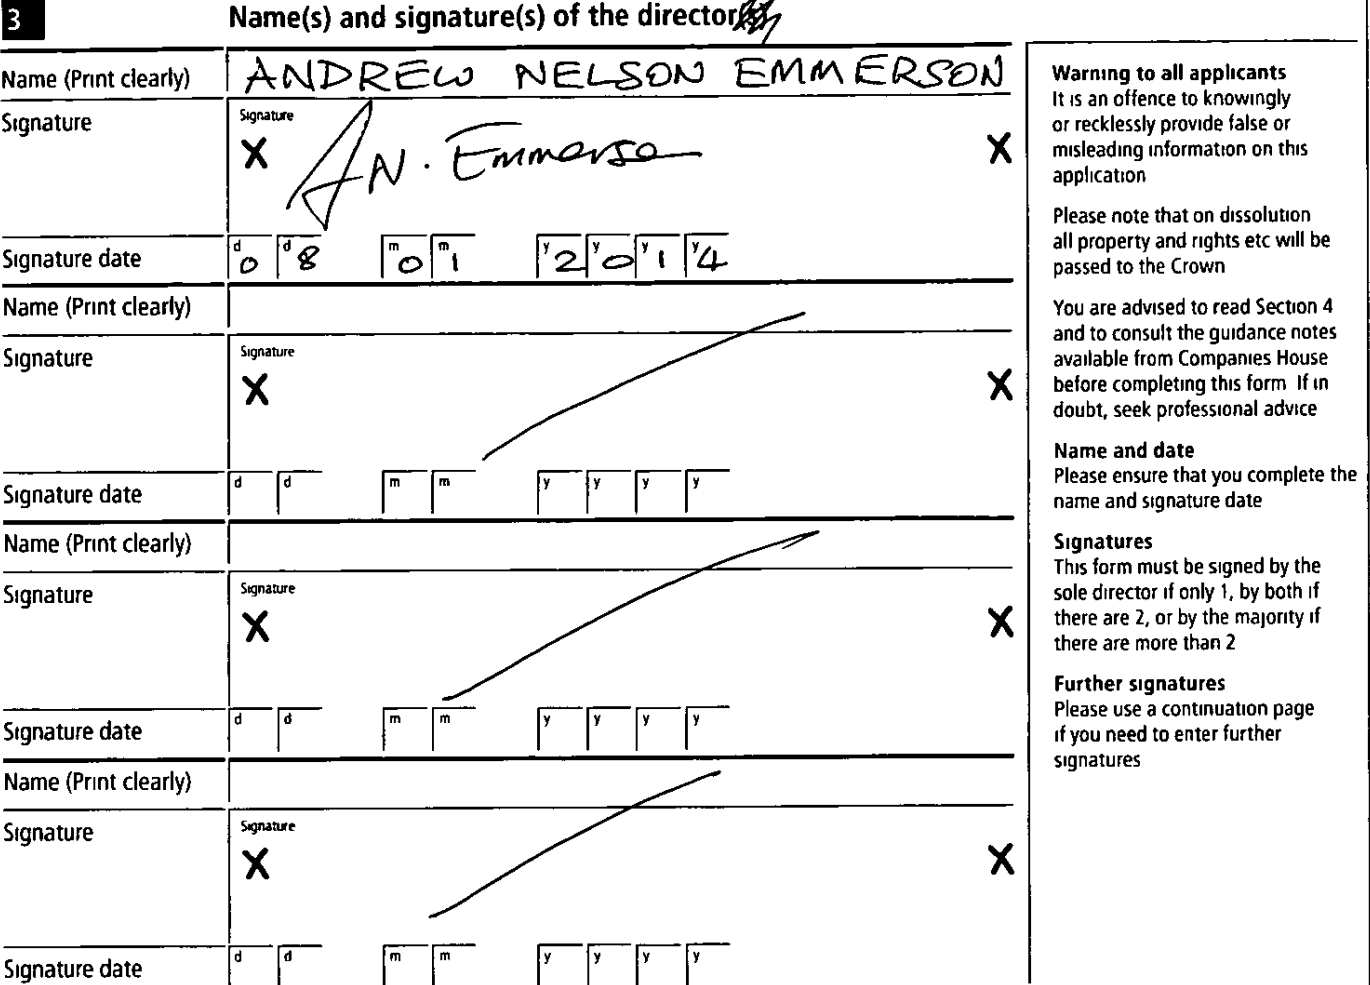 3 Name(s) and signature(s) of the director
Name (Print clearly) ANDREW NELSON EMMERSON
Signature Signature
X AN. Emmerson X
Signature date d 0 d 8 m 0 m 1 y 2 y 0 y 1 y 4
Name (Print clearly)
Signature Signature
X X
Signature date d d m m y y y y
Name (Print clearly)
Signature Signature
X X
Signature date d d m m y y y y
Name (Print clearly)
Signature Signature
X X
Signature date d d m m y y y y
Warning to all applicants
It is an offence to knowingly
or recklessly provide false or
misleading information on this
application
Please note that on dissolution
all property and rights etc will be
passed to the Crown
You are advised to read Section 4
and to consult the guidance notes
available from Companies House
before completing this form If in
doubt, seek professional advice
Name and date
Please ensure that you complete the
name and signature date
Signatures
This form must be signed by the
sole director if only 1, by both if
there are 2, or by the majority if
there are more than 2
Further signatures
Please use a continuation page
if you need to enter further
signatures